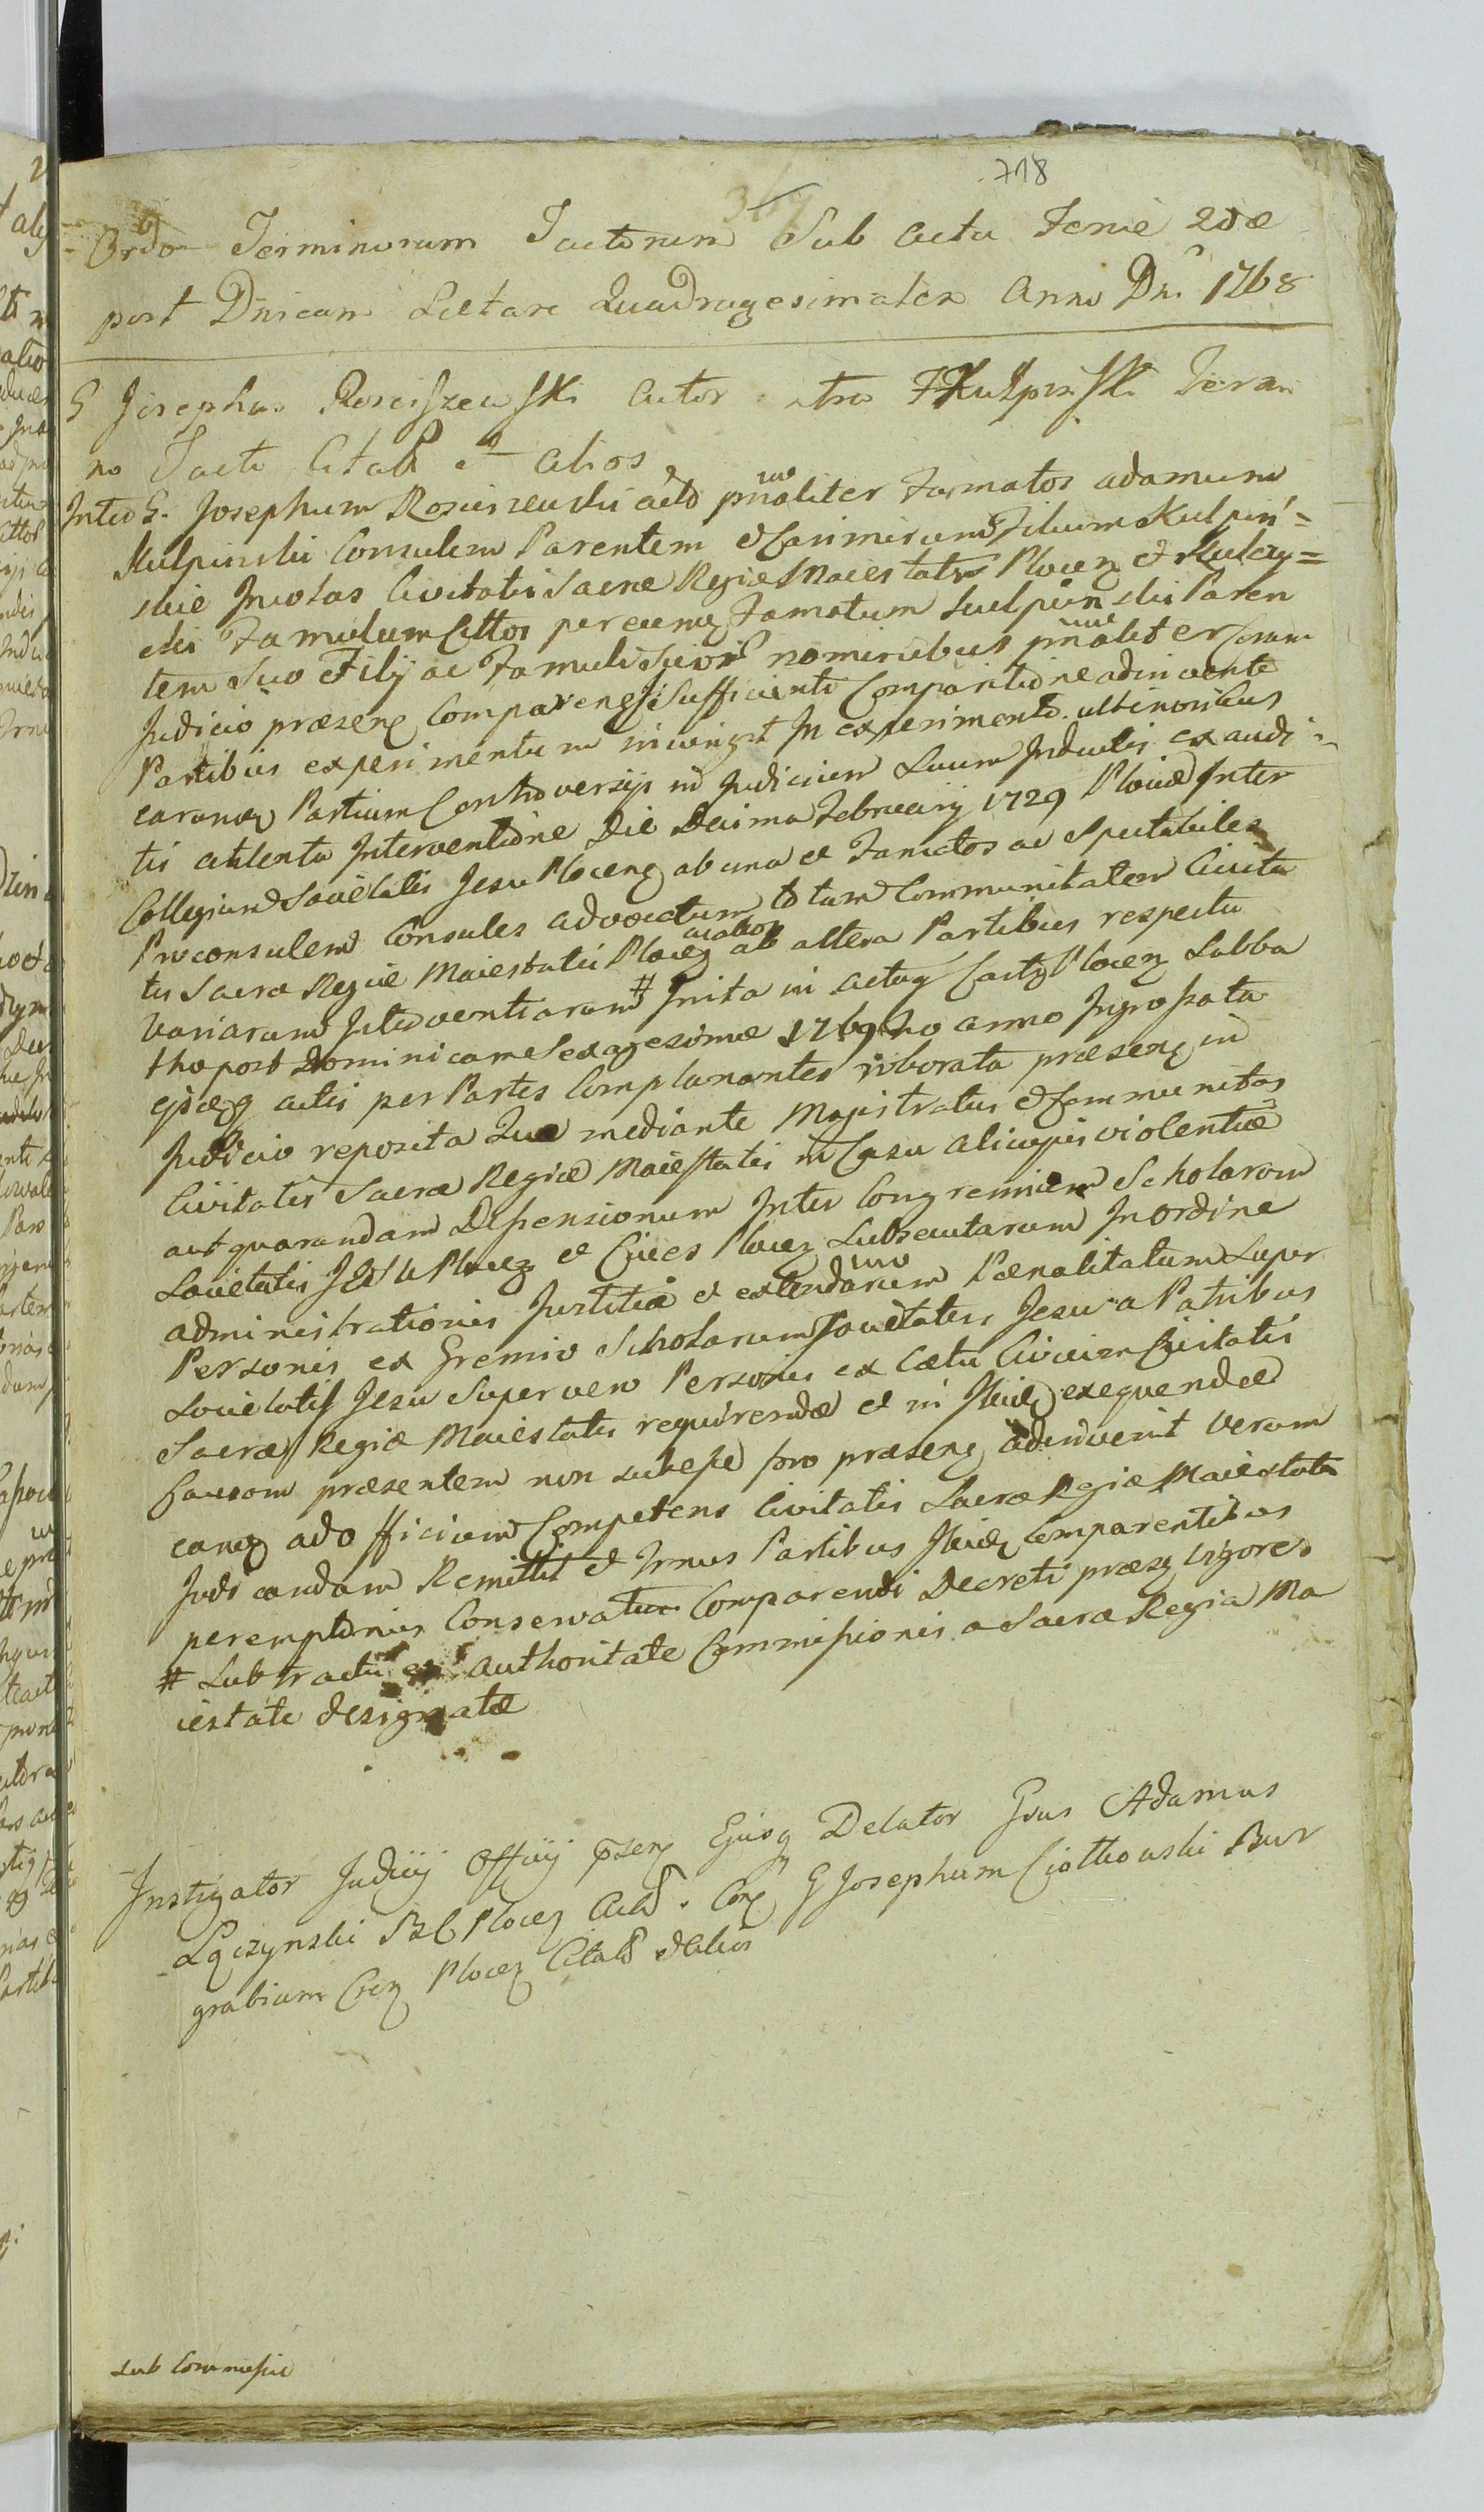 718
367
Ordo Terminorum Tactorum Sub Actu Feriæ 2dæ
post Dnicam Lætare Quadragesimalem Anno Dni 1768
G Josephus Rosciszewski Actor ctra F Kulpinski Term
no Tacto Citatt et alios
Inter G. Josephum Rosciszewski acto pnaliter Famatos Adamum
Kulpinski Consulem Parentem et Casimirum Filium Kulpiń=
skie Incolas Civitatis Sacræ Regiæ Maiestatis Plocen et Kulczy=
cki Famulum Cittos per eunq Famatum Kulpinski Paren
tem Suo et Filij ac Famuli Suor nominibus pnaliter coram
Judicio præsenq Comparenq Sufficienti Comparitione adinventa
Partibus experimentum iniungit In experimento ulterioribus
earunq Partium Controversijs in Judicium Suum Inductis exaudi
tis attenta Interventione Die Decima February 1729 Plociæ Inter
Collegium Societatis Jesu Plocenq ab una et Famatos ac Spectabiles
Proconsulem Consules advocatum totam Communitatem Civita
tis Sacræ Regiæ Maiestatis Plocen ab altera Partibus respectu
Variarum Interventiarum # Inita in Actaq Castr Plocen Sabba
tho post Dominicam Sexagesimæ 1769no anno Ingrossata
eisq actis per Partes Complanantes roborata præsenq in
Judicio reposita Qua mediante Magistratus et Communitas
Civitatis Sacræ Regiæ Maiestatis in Casu alicuius violentiæ
aut quarundam Dissensionum Inter Congremium Scholarum
Societatis Jesu Plocen et Cives Plocen Subsecutarum In Ordine
administrationis Justitiæ et extendarum Pœnalitatum Super
Personis ex Gremio Scholarum Societatis Jesu a Patribus
Societatis Jesu Super vero Personis ex Cœtu Civium Civitatis
Sacræ Regiæ Maiestatis requirendæ et in Ibidq exequendæ
Causam præsentem non subesse foro præsenq adinvenit Verum
eanq ad Officium Competens Civitatis Sacræ Regiæ Maiestatis
Judicandam Remittit et Trnus Partibus Ibidq Comparentibus
peremptorius Conservatur Comparendi Decreti præsq vigore
# Subtractu et authoritate Commissionis a Sacra Regia Ma
iestate designatæ
Instigator Judicij Officij pszenq Eiusq Delator Gsus Adamus
Łączynski B C Plocen Act. Con G Josephum Ciołkowski Bur
grabium Cen Plocen Citatt et alios
sub Commissio